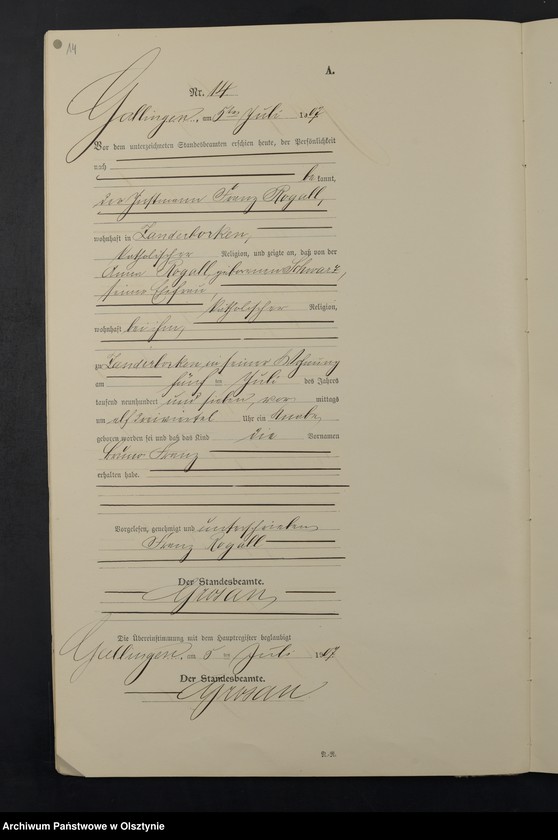 14
A.
Nr. 14.
Gallingen, am 5ten Juli 1907
Vor dem unterzeichneten Standesbeamten erschien heute, der Persönlichkeit
nach
be kannt,
der Instmann Franz Rogall,
wohnhaft in Zanderborken,
katholischer Religion, und zeigte an, daß von der
Anna Rogall geborenen Schwarz,
seiner Ehefrau,
katholischer Religion,
wohnhaft bei ihm,
zu Zanderborken in seiner Wohnung
am fünf ten Juli des Jahres
tausend neunhundert und sieben, vor mittags
um elf dreiviertel Uhr ein Knabe
geboren worden sei und daß das Kind die Vornamen
Bruno Franz
erhalten habe.
Vorgelesen, genehmigt und unterschrieben
Franz Rogall
Der Standesbeamte.
Grosan
Die Übereinstimmung mit dem Hauptregister beglaubigt
Gallingen, am 5 ten Juli 1907
Der Standesbeamte.
Grosan
N.-R.
Archiwum Państwowe w Olsztynie